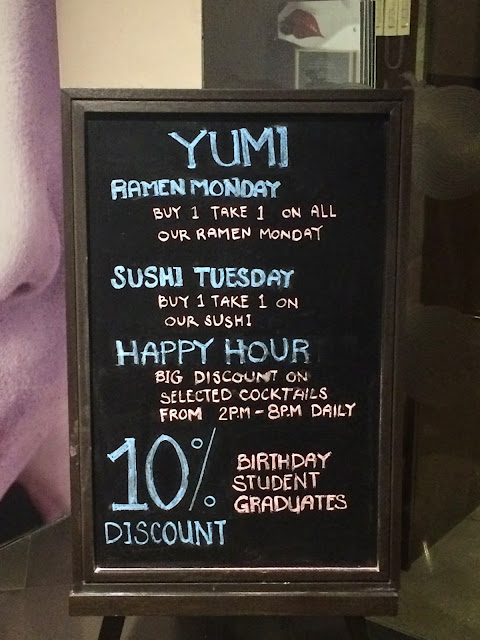 YUMI
RAMEN MONDAY
BUY 1 TAKE 1 ON ALL
OUR RAMEN MONDAY
SUSHI TUESDAY
BUY 1 TAKE 1 ON
OUR SUSHI
HAPPY HOUR
BIG DISCOUNT ON
SELECTED COCKTAILS
FROM 2PM-8PM DAILY
10%
DISCOUNT
BIRTHDAY
STUDENT
GRADUATES